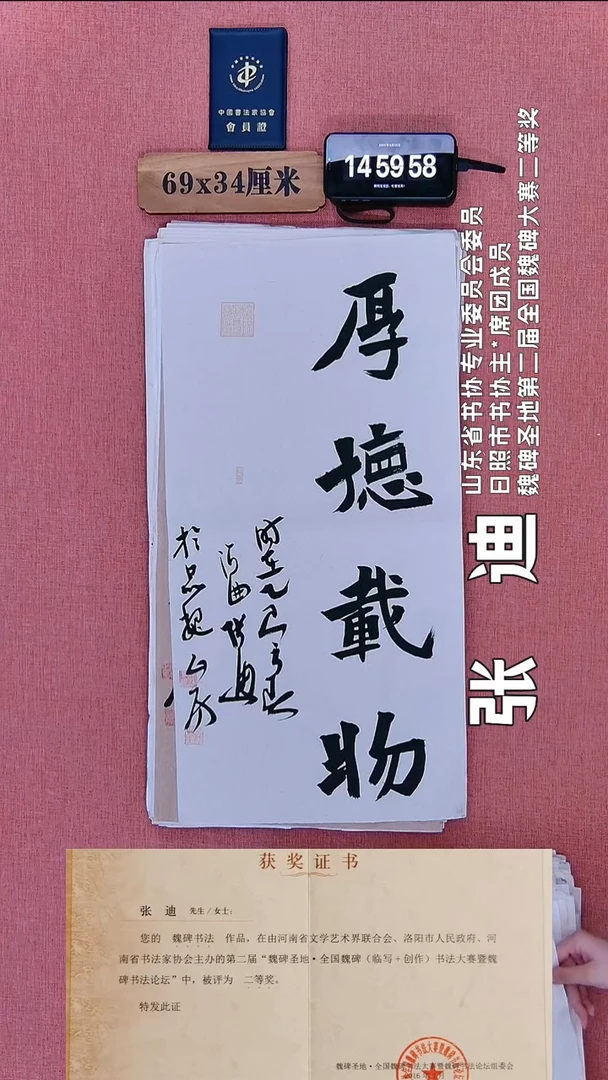 中國書法家協會
會員證
69x34厘米
14 59 58
厚德載物
時在乙巳之春
河曲張迪
於思魏山房
山东省书协专业委员会委员
日照市书协主*席团成员
魏碑圣地第二届全国魏碑大赛二等奖
张 迪
获奖证书
张 迪 先生/女士：
您的 魏碑书法 作品，在由河南省文学艺术界联合会、洛阳市人民政府、河
南省书法家协会主办的第二届“魏碑圣地·全国魏碑（临写+创作）书法大赛暨魏
碑书法论坛”中，被评为 二等奖。
特发此证
魏碑圣地·全国魏碑书法大赛暨魏碑书法论坛组委会